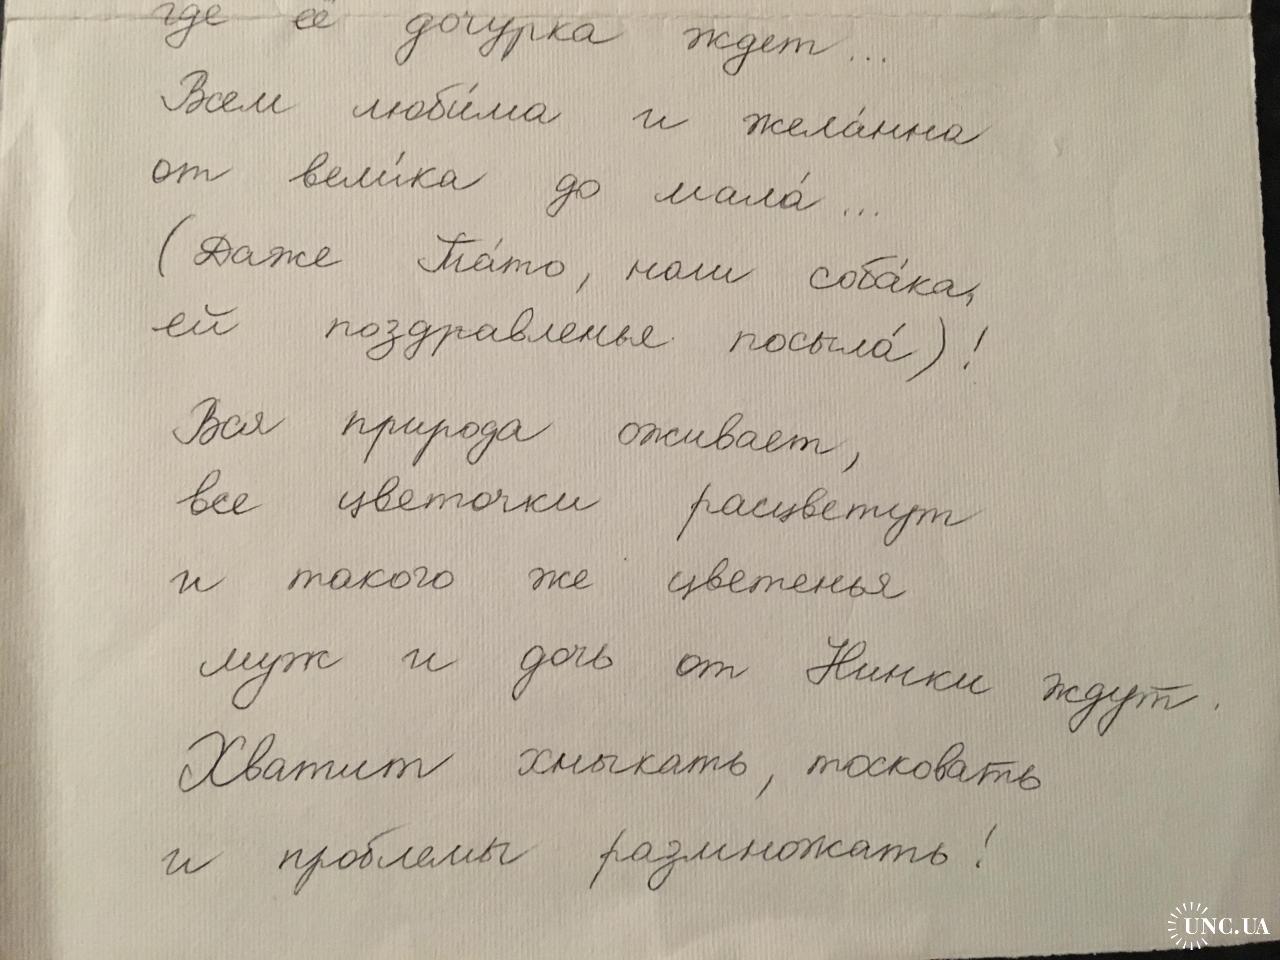 где её дочурка ждет...
Всем люби́ма и жела́нна
от вели́ка до мала́...
(Даже Та́то, наш соба́ка,
ей поздравленья посыла́)!
Вся природа оживает,
все цветочки расцветут
и такого же цветенья
муж и дочь от Нинки ждут.
Хватит хныкать, тосковать
и проблемы размножать!
UNC.UA